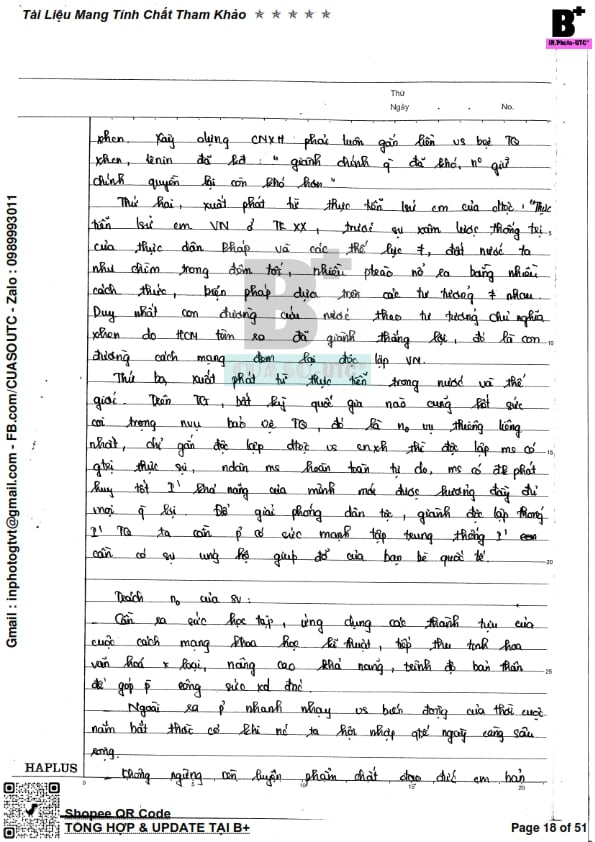 Tài Liệu Mang Tính Chất Tham Khảo ★ ★ ★ ★ ★
B+
IN.Photo-UTC
Thứ
Ngày . . No.
xhcn. Xây dựng CNXH phải luôn gắn liền vs bve TQ
xhcn, Lênin đã kđ: "giành chính q đã khó, nº giữ
chính quyền lại còn khó hơn"
Thứ hai, xuất phát từ thực tiễn lsử cm của dtộc: "Thực
tiễn lsử cm VN ở TK XX, trước sự xâm lược thống trị
của thực dân Pháp và các thế lực ≠, đất nước ta
như chìm trong đêm tối, nhiều ptrào nổ ra bằng nhiều
cách thức, biện pháp dựa trên các tư tưởng ≠ nhau.
Duy nhất con đường cứu nước theo tư tương chủ nghĩa
xhcn do HCM tìm ra đã giành thắng lợi, đó là con
đường cách mạng đem lại độc lập VN.
Thứ ba, xuất phát từ thực tiễn trong nước và thế
giới. Trên TG, bất kỳ quốc gia nào cũng hết sức
coi trọng nvụ bảo vệ TQ, đó là nº vụ thiêng liêng
nhất, chỉ gắn độc lập dtộc vs cnxh thì độc lập ms có
gtrị thực sự, ndân ms hoàn toàn tự do, ms có đk phát
huy tốt I' khả năng của mình mới được hưởng đầy đủ
mọi q lợi. Để giải phóng dân tộc, giành độc lập thống
I' TQ ta cần p có sức mạnh tập trung thống I' còn
cần có sự ủng hộ giúp đỡ của bạn bè quốc tế.
Trách nº của sv:
- Cần ra sức học tập, ứng dụng các thành tựu của
cuộc cách mạng khoa học kĩ thuật, tiếp thu tinh hoa
văn hoá x loại, nâng cao khả năng, trình độ bản thân
để góp p công sức xd đnc.
- Ngoài ra p nhanh nhạy vs biến động của thời cuộc
nắm bắt thác cơ khi nc ta hội nhập qtế ngày càng sâu
rộng.
- Không ngừng rèn luyện phẩm chất đạo đức cm bản
5
10
15
20
25
B+
CUA SO-UTC
HAPLUS
0 5 10 15 20
Gmail : inphotogtvt@gmail.com - FB.com/CUASOUTC - Zalo : 0989993011
Shopee QR Code
TỔNG HỢP & UPDATE TẠI B+
Page 18 of 51